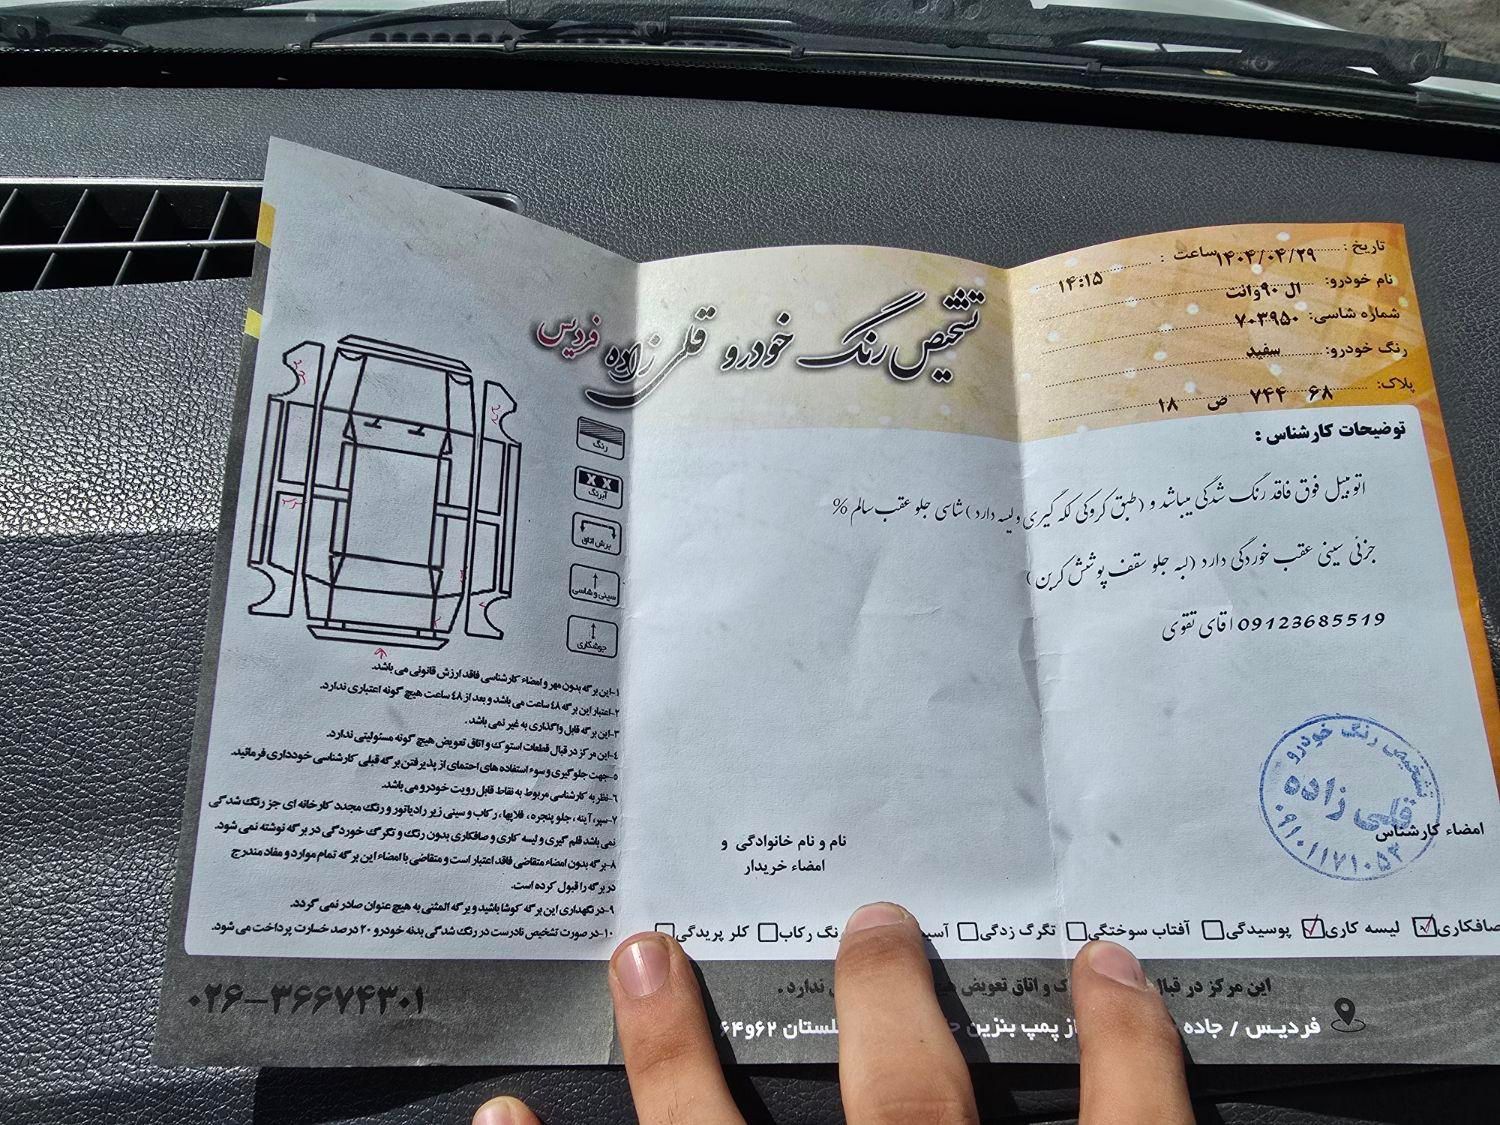 تشخیص رنگ خودرو قلی زاده فردیس
تاریخ : ۱۴۰۴/۰۴/۲۹ ساعت : ۱۴:۱۵
نام خودرو: ال ۹۰ وانت
شماره شاسی: ۷۰۳۹۵۰
رنگ خودرو: سفید
پلاک: ۶۸ ۷۴۴ ص ۱۸
توضیحات کارشناس :
اتومبیل فوق فاقد رنگ شدگی میباشد و (طبق کروکی لکه گیری و لیسه دارد) شاسی جلو عقب سالم %
جزئی سینی عقب خوردگی دارد (لبه جلو سقف پوشش کربن)
09123685519 اقای تقوی
رنگ
آبرنگ
برش اتاق
سینی و شاسی
جوشکاری
۱-این برگه بدون مهر و امضاء کارشناسی فاقد ارزش قانونی می باشد.
۲-اعتبار این برگه ٤٨ ساعت می باشد و بعد از ٤٨ ساعت هیچ گونه اعتباری ندارد.
۳-این برگه قابل واگذاری به غیر نمی باشد.
٤-این مرکز در قبال قطعات استوک و اتاق تعویض هیچ گونه مسئولیتی ندارد.
۵-جهت جلوگیری و سوء استفاده های احتمای از پذیرفتن برگه قبلی کارشناسی خودداری فرمائید.
۶-نظریه کارشناسی مربوط به نقاط قابل رویت خودرو می باشد.
۷-سپر، آینه ، جلو پنجره ، قلاپها، رکاب و سینی زیر رادیاتور و رنگ مجدد کارخانه ای جز رنگ شدگی
نمی باشد قلم گیری و لیسه کاری و صافکاری بدون رنگ و تگرگ خوردگی در برگه نوشته نمی شود.
۸-برگه بدون امضاء متقاضی فاقد اعتبار است و متقاضی با امضاء این برگه تمام موارد و مفاد مندرج
در برگه را قبول کرده است.
۹-در نگهداری این برگه کوشا باشید و برگه المثنی به هیچ عنوان صادر نمی گردد.
۱۰-در صورت تشخیص نادرست در رنگ شدگی بدنه خودرو ۲۰ درصد خسارت پرداخت می شود.
نام و نام خانوادگی و
امضاء خریدار
تشخیص رنگ خودرو
قلی زاده
۰۹۱۰۱۱۷۱۰۵۳
امضاء کارشناس
صافکاری لیسه کاری پوسیدگی آفتاب سوختگی تگرگ زدگی رنگ رکاب کلر پریدگی
این مرکز در قبال و اتاق تعویض ندارد.
فردیس / جاده از پمپ بنزین گلستان ۶۲و۶۴
۰۲۶-۳۶۶۷۴۳۰۱